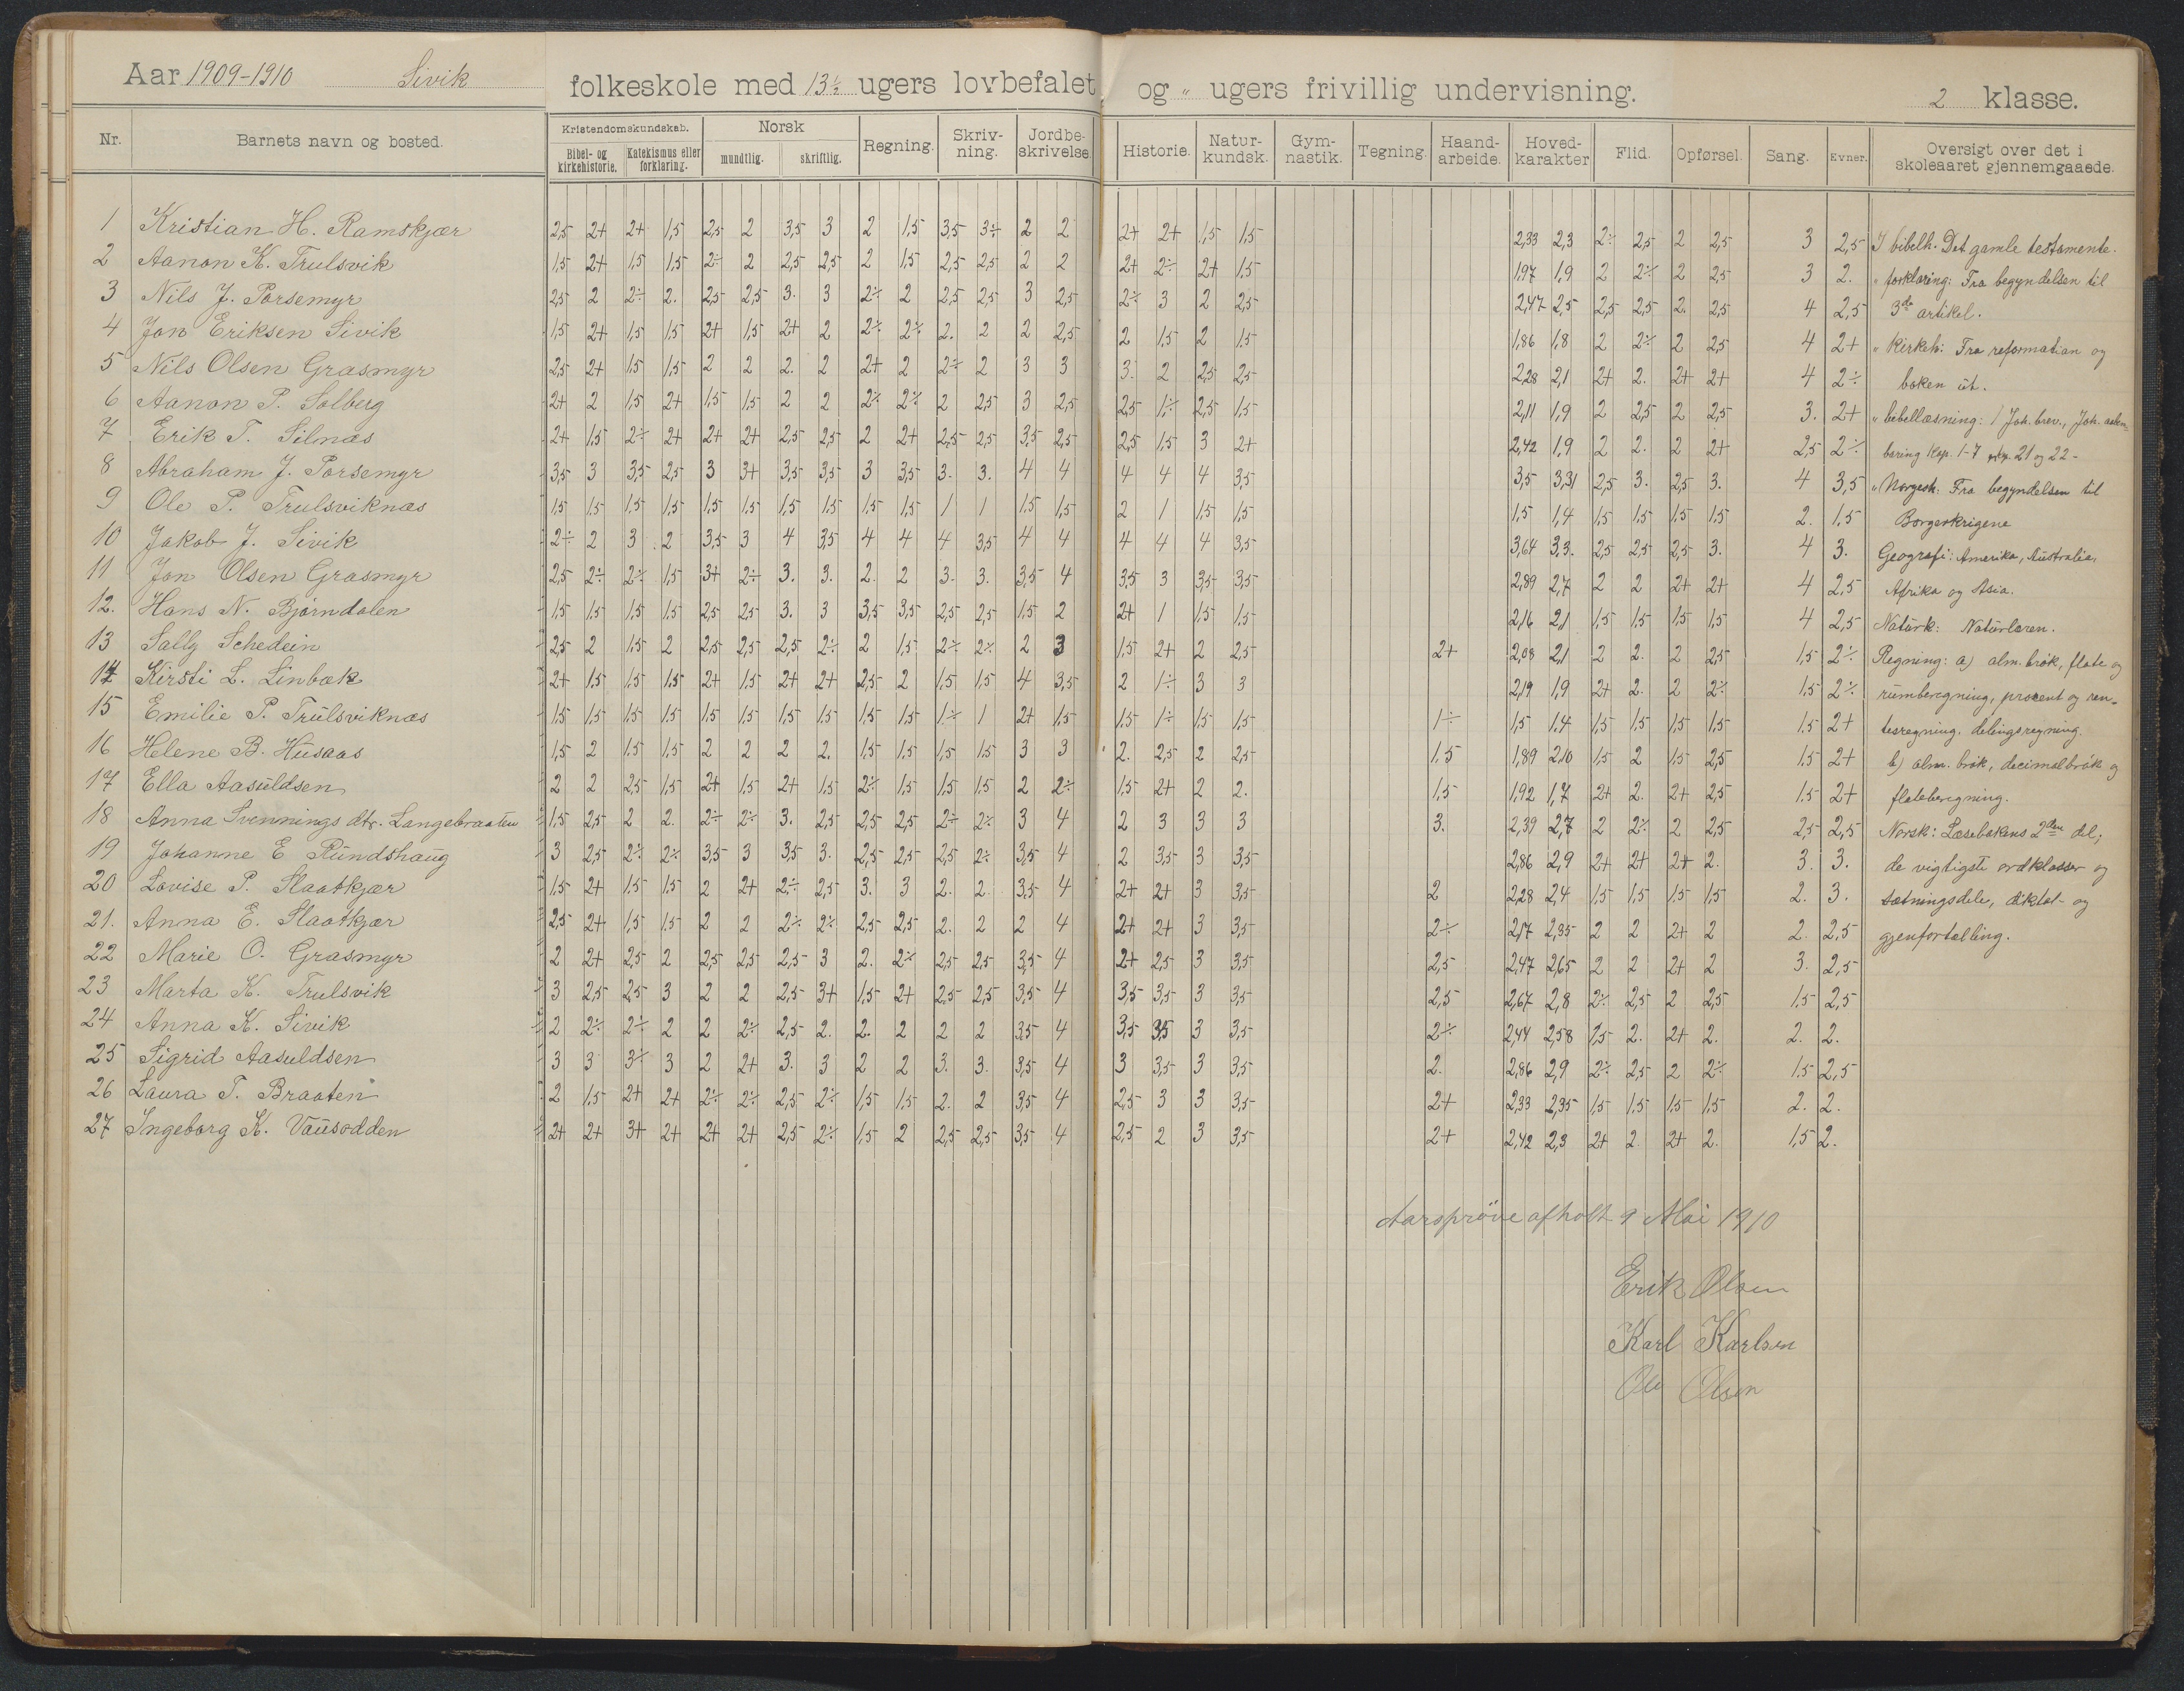 Aar 1909-1910 Sivik folkeskole med 13½ ugers lovbefalet og " ugers frivillig undervisning. 2 klasse.
Nr. Barnets navn og bosted. Kristendomskundskab. Bibel- og kirkehistorie. Katekismus eller forklaring. Norsk mundtlig. skriftlig. Regning. Skriv-ning. Jordbe-skrivelse Historie. Natur-kundsk. Gym-nastik. Tegning. Haand-arbeide. Hoved-karakter Flid. Opførsel. Sang. Evner. Oversigt over det i skoleaaret gjennemgaaede.
1 Kristian H. Ramskjær 2,5 2+ 2+ 1,5 2,5 2 3,5 3 2 1,5 3,5 3÷ 2 2 2+ 2+ 1,5 1,5 2,33 2,3 2÷ 2,5 2 2,5 3 2,5
2 Aanon K. Trulsvik 1,5 2+ 1,5 1,5 2÷ 2 2,5 2,5 2 1,5 2,5 2,5 2 2 2+ 2÷ 2+ 1,5 1,97 1,9 2 2÷ 2 2,5 3 2.
3 Nils J. Porsemyr 2,5 2 2÷ 2. 2,5 2,5 3. 3 2÷ 2 2,5 2,5 3 2,5 2÷ 3 2 2,5 2,47 2,5 2,5 2,5 2. 2,5 4 2,5
4 Jon Eriksen Sivik 1,5 2+ 1,5 1,5 2+ 1,5 2+ 2 2÷ 2÷ 2. 2 2 2,5 2 1,5 2 1,5 1,86 1,8 2 2÷ 2 2,5 4 2+
5 Nils Olsen Grasmyr 2,5 2+ 1,5 1,5 2 2 2. 2 2+ 2 2÷ 2 3 3 3. 2 2,5 2,5 2,28 2,1 2+ 2. 2+ 2+ 4 2÷
6 Aanon P. Solberg 2+ 2 1,5 2+ 1,5 1,5 2 2 2÷ 2÷ 2 2,5 3 2,5 2,5 1÷ 2,5 1,5 2,11 1,9 2 2,5 2 2,5 3. 2+
7 Erik T. Silnæs 2+ 1,5 2÷ 2+ 2+ 2+ 2,5 2,5 2 2+ 2,5 2,5 3,5 2,5 2,5 1,5 3 2+ 2,42 1,9 2 2. 2 2+ 2,5 2÷
8 Abraham J. Porsemyr 3,5 3 3,5 2,5 3 3+ 3,5 3,5 3 3,5 3. 3. 4 4 4 4 4 3,5 3,5 3,31 2,5 3. 2,5 3. 4 3,5
9 Ole P. Trulsviknæs 1,5 1,5 1,5 1,5 1,5 1,5 1,5 1,5 1,5 1,5 1 1 1,5 1,5 2 1 1,5 1,5 1,5 1,4 1,5 1,5 1,5 1,5 2. 1,5
10 Jakob J. Sivik 2÷ 2 3 2 3,5 3 4 3,5 4 4 4 3,5 4 4 4 4 4 3,5 3,64 3,3. 2,5 2,5 2,5 3. 4 3.
11 Jon Olsen Grasmyr 2,5 2÷ 2÷ 1,5 3+ 2÷ 3. 3. 2. 2 3. 3. 3,5 4 3,5 3 3,5 3,5 2,89 2,7 2 2 2+ 2+ 4 2,5
12. Hans N. Bjørndalen 1,5 1,5 1,5 1,5 2,5 2,5 3. 3 3,5 3,5 2,5 2,5 1,5 2 2+ 1 1,5 1,5 2,16 2,1 1,5 1,5 1,5 1,5 4 2,5
13 Sally Schedein 2,5 2 1,5 2 2,5 2,5 2,5 2÷ 2 1,5 2÷ 2÷ 2 3 1,5 2+ 2 2,5 2+ 2,08 2,1 2 2. 2 2,5 1,5 2÷
14 Kirsti L. Linbæk 2+ 1,5 1,5 1,5 2+ 1,5 2+ 2+ 2,5 2 1,5 1,5 4 3,5 2 1÷ 3 3 2,19 1,9 2+ 2. 2 2÷ 1,5 2÷
15 Emilie P. Trulsviknæs 1,5 1,5 1,5 1,5 1,5 1,5 1,5 1,5 1,5 1,5 1÷ 1 2+ 1,5 1,5 1÷ 1,5 1,5 1÷ 1,5 1,4 1,5 1,5 1,5 1,5 1,5 2+
16 Helene B. Husaas 1,5 2 1,5 1,5 2 2 2 2. 1,5 1,5 1,5 1,5 3 3 2. 2,5 2 2,5 1,5 1,89 2,10 1,5 2 1,5 2,5 1,5 2+
17 Ella Aasuldsen 2 2 2,5 1,5 2+ 1,5 2+ 1,5 2÷ 1,5 1,5 1,5 2 2÷ 1,5 2+ 2 2. 1,5 1,92 1,7 2+ 2. 2+ 2,5 1,5 2+
18 Anna Svennings dtr. Langebraaten 1,5 2,5 2 2. 2÷ 2÷ 3. 2,5 2,5 2,5 2÷ 2÷ 3 4 2 3 3 3 3. 2,39 2,7 2 2÷ 2 2,5 2,5 2,5
19 Johanne E Rundshaug 3 2,5 2÷ 2÷ 3,5 3 3,5 3. 2,5 2,5 2,5 2÷ 3,5 4 2 3,5 3 3,5 2,86 2,9 2+ 2+ 2+ 2. 3. 3.
20 Lovise P. Slaatkjær 1,5 2+ 1,5 1,5 2 2+ 2÷ 2,5 3. 3 2. 2. 3,5 4 2+ 2+ 3 3,5 2 2,28 2,4 1,5 1,5 1,5 1,5 2. 3.
21. Anna E. Slaatkjær 2,5 2+ 1,5 1,5 2 2 2÷ 2÷ 2,5 2,5 2. 2 2 4 2+ 2+ 3 3,5 2÷ 2,17 2,35 2 2 2+ 2 2. 2,5
22 Marie O. Grasmyr 2 2+ 2,5 2 2,5 2,5 2,5 3 2. 2÷ 2,5 2,5 3,5 4 2+ 2,5 3 3,5 2,5 2,47 2,65 2 2 2+ 2 3. 2,5
23 Marta K. Trulsvik 3 2,5 2,5 3 2 2 2,5 3+ 1,5 2+ 2,5 2,5 3,5 4 3,5 3,5 3 3,5 2,5 2,67 2,8 2÷ 2,5 2 2,5 1,5 2,5
24 Anna K. Sivik 2 2÷ 2÷ 2 2 2÷ 2,5 2. 2. 2 2 2 3,5 4 3,5 3,5 3 3,5 2÷ 2,44 2,58 1,5 2. 2+ 2. 2. 2.
25 Sigrid Aasuldsen 3 3 3÷ 3 2 2+ 3. 3 2 2 3. 3. 3,5 4 3 3,5 3 3,5 2. 2,86 2,9 2÷ 2,5 2 2÷ 1,5 2,5
26 Laura T. Braaten 2 1,5 2+ 2+ 2÷ 2÷ 2,5 2÷ 1,5 1,5 2. 2 3,5 4 2,5 3 3 3,5 2+ 2,33 2,35 1,5 1,5 1,5 1,5 2. 2.
27 Ingeborg K. Vausodden 2+ 2+ 3+ 2+ 2+ 2+ 2,5 2÷ 1,5 2 2,5 2,5 3,5 4 2,5 2 3 3,5 2+ 2,42 2,3 2+ 2. 2+ 2. 1,5 2.
I bibelh: Det gamle testamente.
" forklaring: Fra begyndelsen til
3de artikel.
" Kirkeh: Fra reformation og
boken ut.
" bibellæsning: 1 Joh. brev., Joh. aaben-
baring Kap. 1-7 21 og 22-
" Norgesh: Fra begyndelsen til
Borgerkrigene
Geografi: Amerika, Australia,
Afrika og Asia.
Naturk: Naturlæren.
Regning: a) alm. brøk, flate og
rumberegning, procent og ren-
tesregning. delingsregning.
b) alm. brøk, decimalbrøk og
flateberegning.
Norsk: Læsebokens 2den del;
de vigtigste ordklasser og
sætningsdele, diktat- og
gjenfortælling.
Aarsprøve afholt 9 Mai 1910
Erik Olsen
Karl Karlsen
Ole Olsen